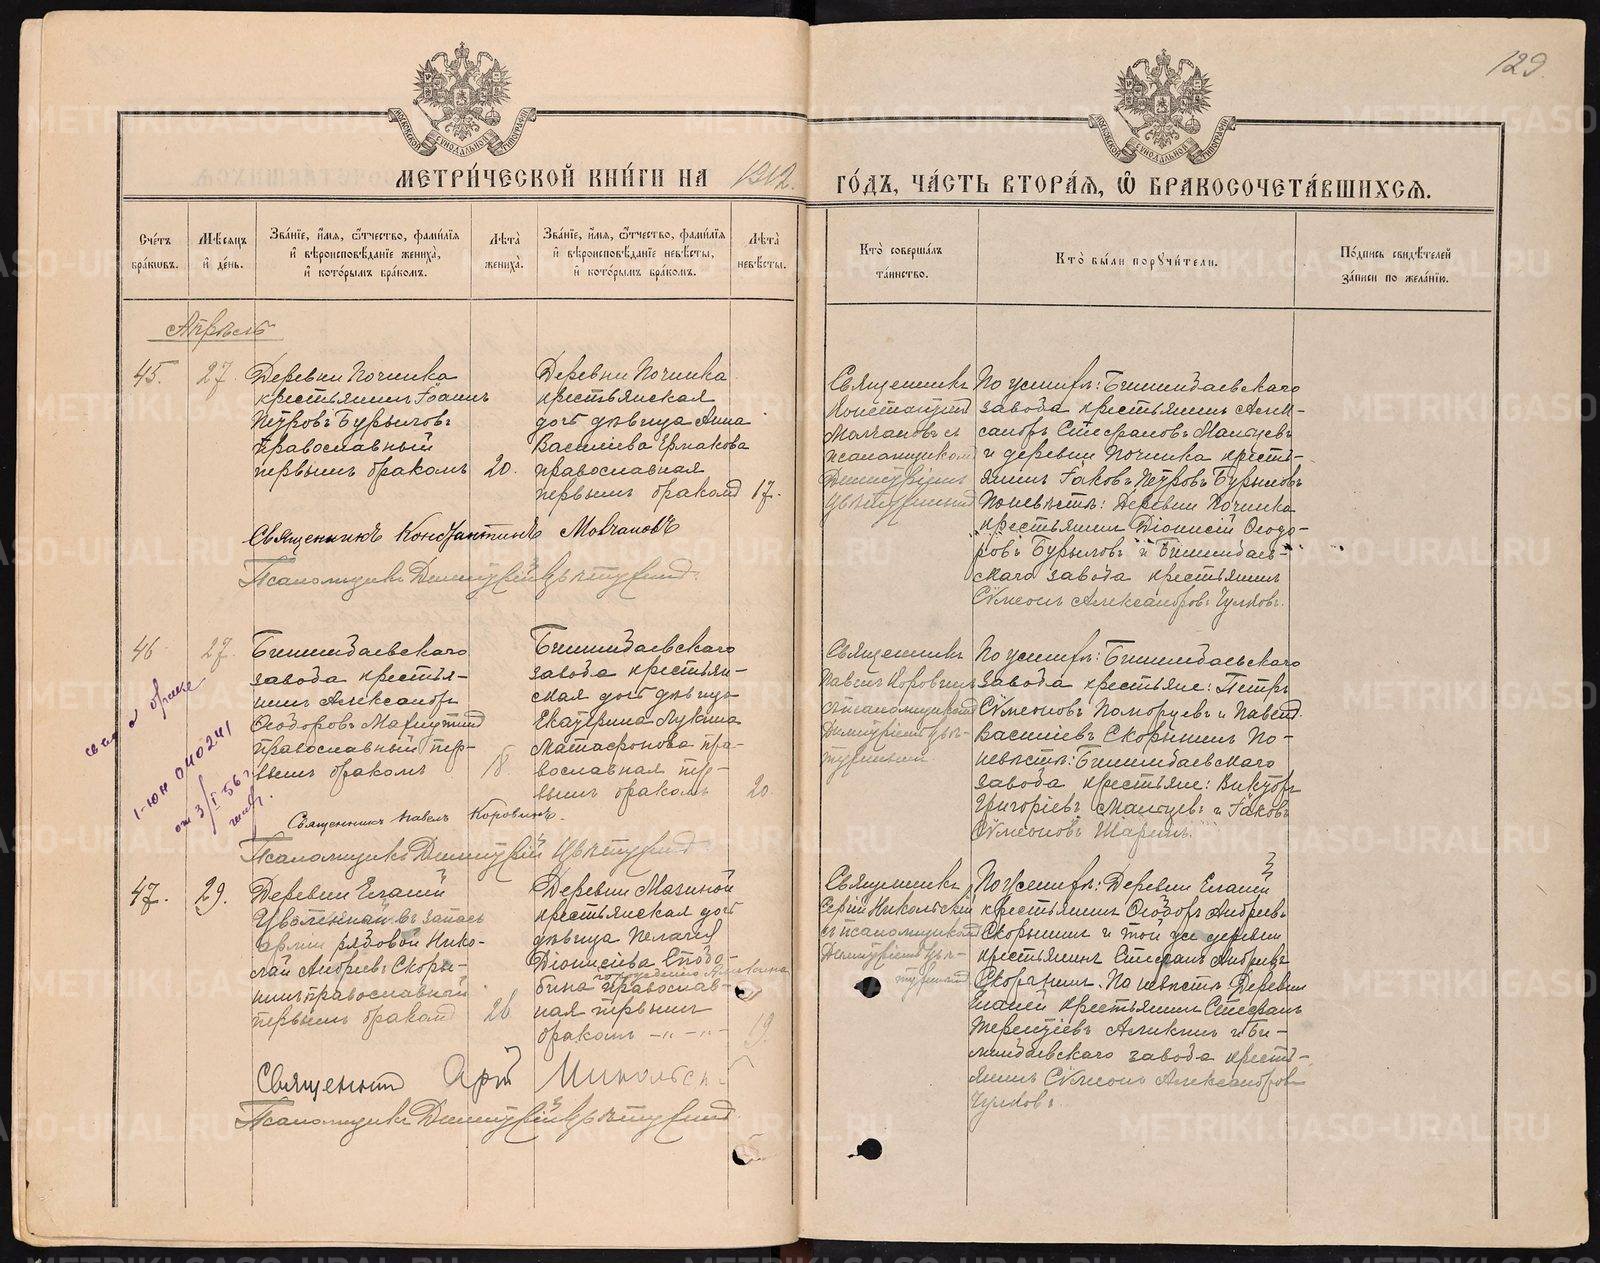 129.
МОСКОВСКОЙ СУНОДАЛЬНОЙ ТИПОГРАФІИ
МОСКОВСКОЙ СУНОДАЛЬНОЙ ТИПОГРАФІИ
МЕТРИ́ЧЕСКОЙ КНИ́ГИ НА 1912. ГО́ДЪ, ЧА́СТЬ ВТОРА́Я, Ѡ БРАКОСОЧЕТА́ВШИХСЯ.
Сче́тъ бра́ковъ.
Мѣ́сяцъ и де́нь.
Зва́нїе, и́мя, ѻ́тчество, фами́лїя и вѣроисповѣ́данїе жениха̀, и кото́рымъ бра́комъ.
Лѣ́та жениха̀.
Зва́нїе, и́мя, ѻ́тчество, фами́лїя и вѣроисповѣ́данїе невѣ́сты, и кото́рымъ бра́комъ.
Лѣ́та невѣ́сты.
Кто̀ соверша́лъ та́инство.
Кто̀ бы́ли поручи́тели.
По́дпись свидѣ́телей за́писи по жела́нїю.
Апрѣль
45.
27.
Деревни Починка
крестьянинъ Іоаннъ
Петровъ Бурыловъ
православный
первымъ бракомъ
20.
Деревни Починка
крестьянская
дочь дѣвица Анна
Василіева Ермакова
православная
первымъ бракомъ
17.
Священникъ
Константинъ
Молчановъ съ
псаломщикомъ
Димитріемъ
По женихѣ: Билимбаевскаго
завода крестьянинъ Алек-
сандръ Стефановъ Мальцевъ
и деревни Починка кресть-
янинъ Іаковъ Петровъ Бурыловъ
По невѣстѣ: Деревни Починка
крестьянинъ Діонисій Ѳеодо-
ровъ Бурыловъ и Билимбаев-
скаго завода крестьянинъ
Сѵмеонъ Александровъ Чулковъ.
Священникъ Константинъ Молчановъ
Псаломщикъ Димитрій
46
27.
Билимбаевскаго
завода крестья-
нинъ Александръ
Ѳеодоровъ
православный пер-
вымъ бракомъ
18.
Билимбаевскаго
завода крестьян-
ская дочь дѣвица
Екатерина Лукина
Матафонова пра-
вославная пер-
вымъ бракомъ
20.
Священникъ
Павелъ Коровинъ
съ псаломщикомъ
По женихѣ: Билимбаевскаго
завода крестьяне: Петръ
Сѵмеоновъ Поморцевъ и Павелъ
Василіевъ Скорынинъ По
невѣстѣ: Билимбаевскаго
завода крестьяне: Викторъ
Григоріевъ Мальцевъ и Іаковъ
Сѵмеоновъ Шаринъ.
о браке
1-ЮН 040241
от 3/I-56 г.
Священникъ Павелъ Коровинъ.
Псаломщикъ Димитрій
47.
29.
Деревни Еланей
Уволенный въ запасъ
арміи рядовой Нико-
лай Андреевъ Скоры-
нинъ православный
первымъ бракомъ
26
Деревни Мазиной
крестьянская дочь
дѣвица Пелагея
Діонисіева Слобо-
дина православ-
ная первымъ
бракомъ
19.
Священникъ
Никольскій
съ псаломщикомъ
По женихѣ: Деревни Еланей
крестьянинъ Ѳеодоръ Андреевъ
Скорынинъ и той же деревни
крестьянинъ Стефанъ Андреевъ
Скорынинъ. По невѣстѣ Деревни
Еланей крестьянинъ Стефанъ
Терентіевъ Аликинъ и Би-
лимбаевскаго завода кресть-
янинъ Сѵмеонъ Александровъ
Чулковъ.
Священникъ Никольскій
Псаломщикъ Димитрій
METRIKI.GASO-URAL.RU